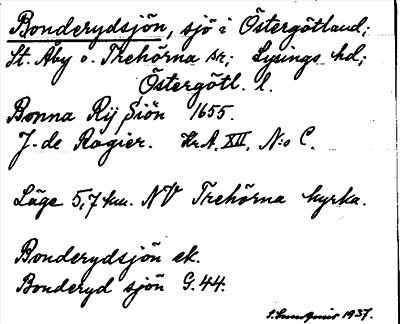 Bonderydsjön, sjö i Östergötland;
St. Åby o. Trehörna sr; Lysings hd;
Östergötl. l.
Bonna Rÿ Siön 1655.
J. de Rogier. Kr.A. XII, N:o C.
Läge 5,7 km. NV Trehörna kyrka.
Bonderydsjön ek.
Bonderyd sjön G.44.
1937.